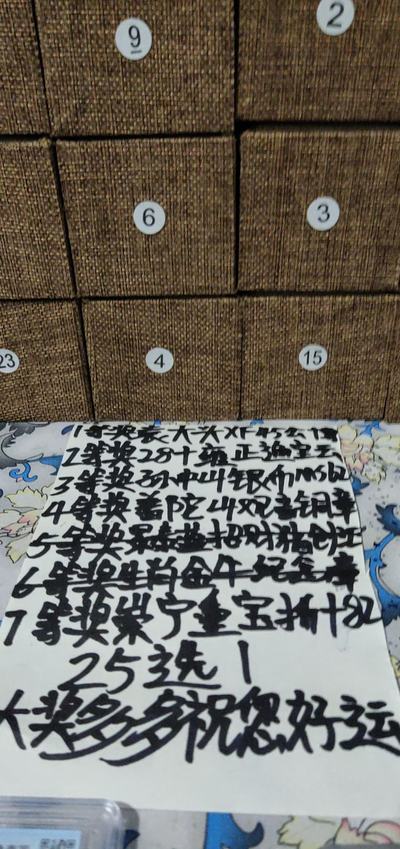 9
2
6
3
23
4
15
1等奖袁大头XF45
2等奖28十雍正
3等奖孙中山银币MS62
4等奖普陀山观音铜章
5等奖招财猪
6等奖生肖金牛纪念章
7等奖崇宁重宝折十82
25选1
大奖多多祝您好运